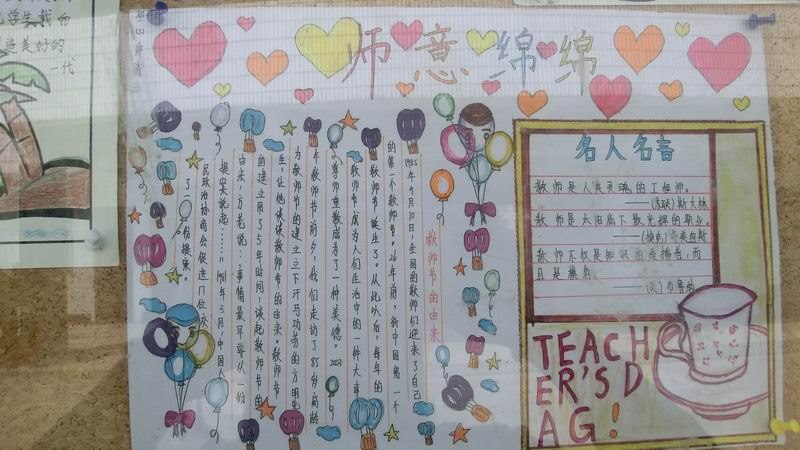 师意绵绵
教师节的由来
1985年9月10日,全国的教师们迎来了自己
的第一个教师节。26年前,新中国第一个
教师节诞生了。从此以后,每年的
教师节成为人们生活中的一件大事
尊师重教成为了一种美德。2003
年教师节前夕,我们走访了85岁高龄
为教师节的建立立下汗马功劳的方明先
生,让他谈谈教师节的由来。教师节
的建立用了5年时间,谈起教师节的
由来,方老说:事情最早要从一份
提案说起……" 1981年3月,中国人
民政治协商会
了一份提案。
名人名言
教师是人类灵魂的工程师。
——(苏联)斯大林
教师是太阳底下最光辉的职业。
——(捷克)夸美纽斯
教师不仅是知识的传播者,而
且是模范。
——(美)布鲁纳
TEACH
ER'S D
AG!
美好的
一代